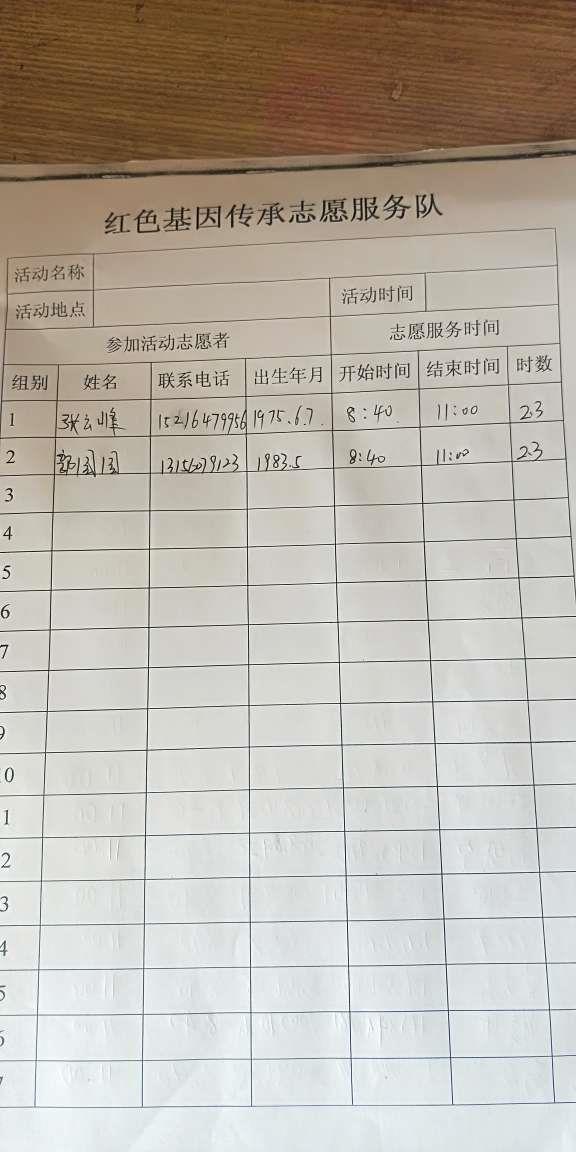 红色基因传承志愿服务队
活动名称
活动地点 活动时间
参加活动志愿者 志愿服务时间
组别 姓名 联系电话 出生年月 开始时间 结束时间 时数
1 张云峰 15216479956 1975.6.7. 8:40. 11:00 2.3
2 郭园园 13156079123 1983.5 8:40 11:00 2.3
3
4
5
6
7
8
9
0
1
2
3
4
5
6
7